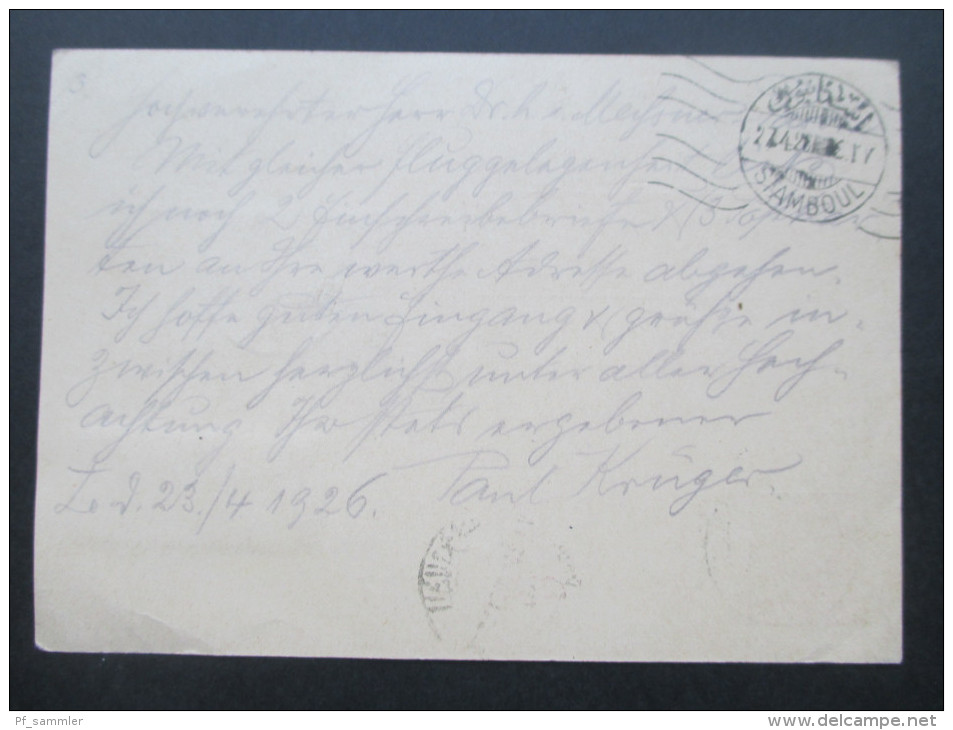 3.
Hochverehrter Herr Dr.
Mit gleicher Fluggelegenheit
ich noch 2 Einschreibebriefe &
ten an Ihre werthe Adresse abgehen.
Ich hoffe guten Eingang & grüße in-
zwischen herzlichst unter aller Hoch-
achtung Ihr stets ergebener
Paul Krüger.
d. 23./4 1926.
STAMBOUL
Pf_sammler
www.delcampe.net